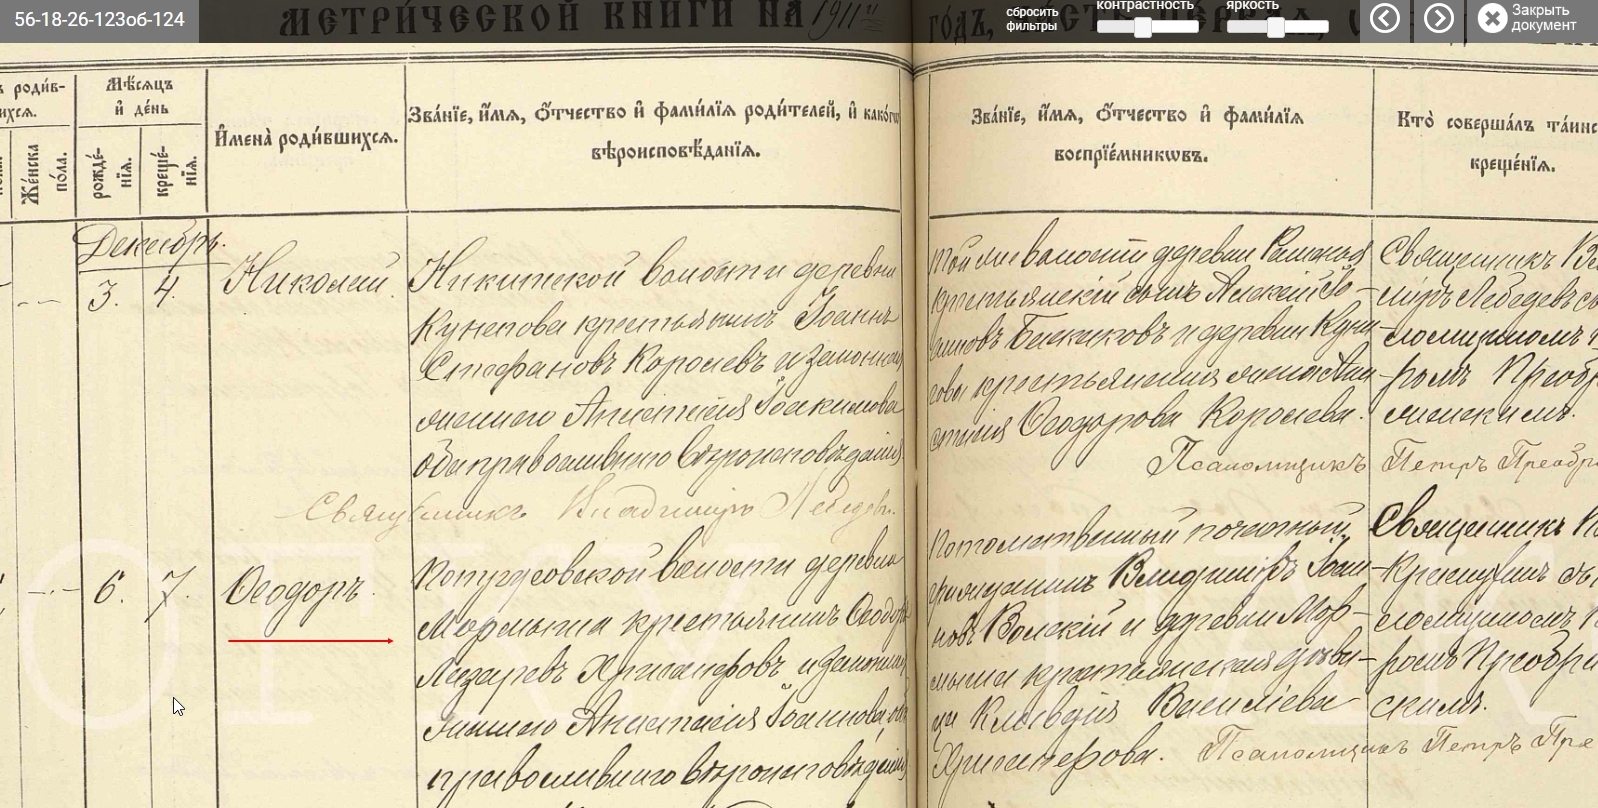 56-18-26-123об-124
МЕТРИ́ЧЕСКОЙ КНИГИ НА 1911й ГО́ДЪ, ЧА́СТЬ ПЕ́РВАЯ,
сбросить фильтры
контрастность
яркость
Закрыть документ
роди́в-
ихсѧ.
Же́нска по́ла.
Мѣ́сѧцъ
и҆ де́нь
рожде́-
нїѧ.
креще́-
нїѧ.
И҆мена̀ роди́вшихсѧ.
Зва́нїе, и҆́мѧ, ѻ҆́тчество и҆ фами́лїѧ роди́телей, и҆ како́гѡ
вѣроисповѣ́данїѧ.
Зва́нїе, и҆́мѧ, ѻ҆́тчество и҆ фами́лїѧ
воспрїе́мникѡвъ.
Кто̀ соверша́лъ та́инс
креще́нїѧ.
Декабрь.
3. 4.
Николай.
Никитской волости деревни
Кунепова крестьянинъ Іоаннъ
Стефановъ Королевъ и законная
жена его Анастасія Іоакимова
оба православнаго вѣроисповѣданія
Священникъ Владиміръ Лебедевъ.
той же волости деревни
крестьянскій сынъ Алексій Іо-
анновъ и деревни Куне-
пова крестьянина жена Ана-
стасія Ѳеодорова Королева.
Псаломщикъ Петръ Преобр
Священникъ Вла
міръ Лебедевъ съ
ломщикомъ П
ромъ Преобр
женскимъ.
6. 7.
Ѳеодоръ.
волости деревни
крестьянинъ Ѳеодоръ
Лазаревъ Христофоровъ и законная
жена его Анастасія Іоаннова, оба
православнаго вѣроисповѣданія
Потомственный почетный
гражданинъ Владиміръ Іоан-
новъ Волскій и деревни Мор-
мыша крестьянская дѣви-
ца Клавдія Васильева
Христофорова.
Псаломщикъ Петръ Пре
Священникъ
Крестилъ съ
ломщикомъ П
ромъ Преобра
скимъ.